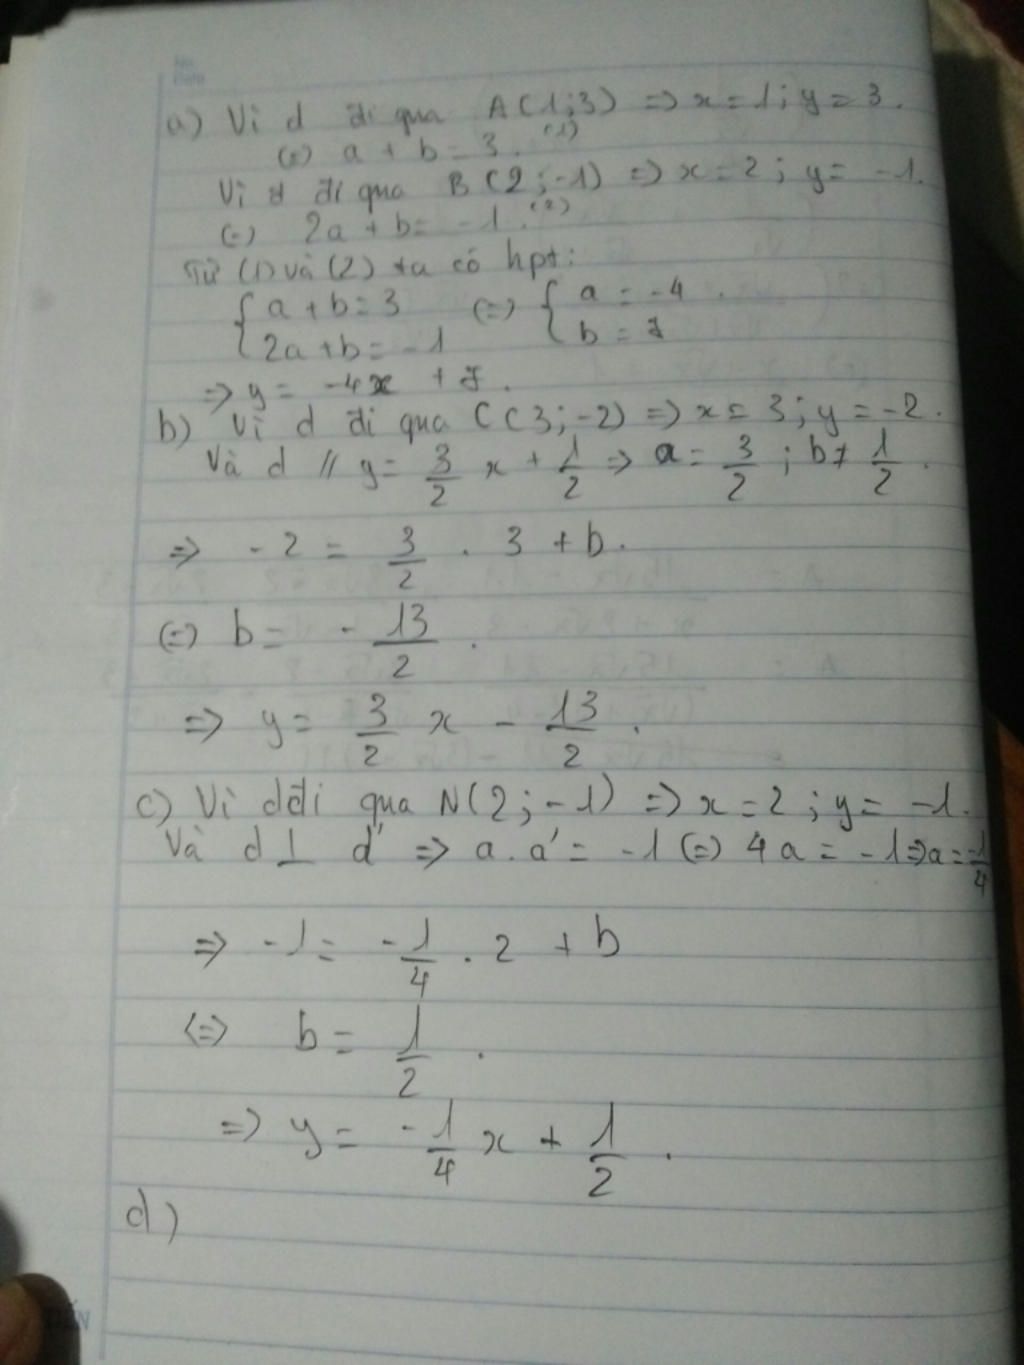 No.
Date
a) Vì d đi qua A(1;3) => x=1; y=3.
(=) a+b=3. (1)
Vì d đi qua B(2;-1) => x=2; y=-1.
(=) 2a+b=-1. (2)
Từ (1) và (2) ta có hpt:
{a+b=3 (=) {a=-4.
2a+b=-1 b=7
=> y= -4x +7.
b) Vì d đi qua C(3;-2) => x=3; y=-2.
Và d // y= 3/2 x + 1/2 => a= 3/2 ; b≠ 1/2.
=> -2 = 3/2 . 3 +b.
(=) b= - 13/2.
=> y= 3/2 x - 13/2.
c) Vì d đi qua N(2;-1) => x=2; y=-1.
Và d⊥ d' => a.a'= -1 (=) 4a= -1 => a= -1/4
=> -1= -1/4 . 2 +b
<=> b= 1/2.
=> y= -1/4 x + 1/2.
d)